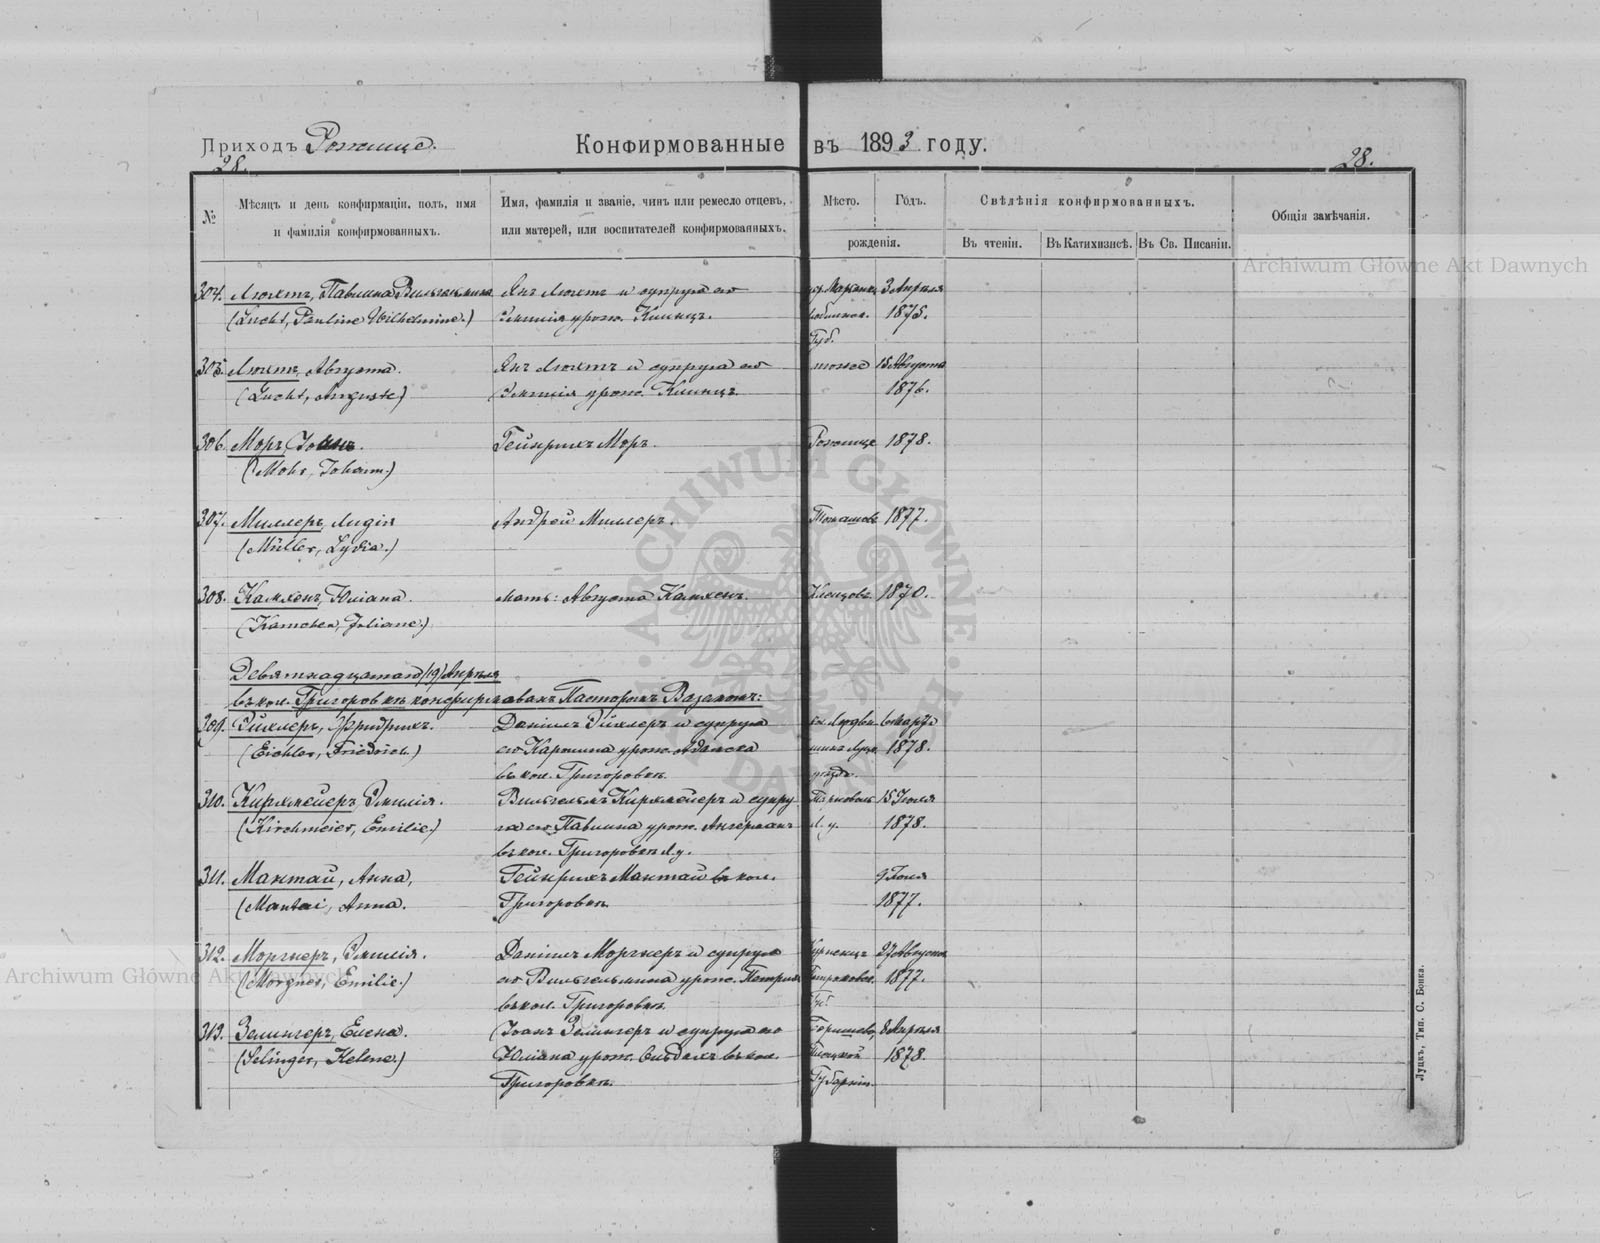 Приходъ Рожище.
Конфирмованные въ 1893 году.
28.
28.
№
Мѣсяцъ и день конфирмаціи, полъ, имя
и фамилія конфирмованныхъ.
Имя, фамилія и званіе, чинъ или ремесло отцевъ,
или матерей, или воспитателей конфирмованныхъ.
Мѣсто.
Годъ.
рожденія.
Свѣдѣнія конфирмованныхъ.
Въ чтеніи.
Въ Катихизисѣ.
Въ Св. Писаніи.
Общія замѣчанія.
304. Люхтъ, Павлина Вильгельмина
(Lucht, Pauline Wilhelmine.)
Янъ Люхтъ и супруга его
Эмилія урож.
3 Апрѣля
1875.
Губ.
305. Люхтъ, Августа.
(Lucht, Auguste)
Янъ Люхтъ и супруга его
Эмилія урож.
тоже
15 Августа
1876.
306. Моръ, Іоанъ.
(Mohr, Johann.)
Гейнрихъ Моръ.
Рожище
1878.
307. Миллеръ, Лидія
(Müller, Lydia.)
Андрей Миллеръ.
1877.
308. Камхенъ, Юліана.
(Kamchen, Juliane.)
мать: Августа Камхенъ.
1870.
Девятнадцатаго (19) Апрѣля
въ кол. Григоровкѣ конфирмованъ Пасторомъ Вазамомъ:
309. Эйхлеръ, Фридрихъ.
(Eichler, Friedrich.)
Даніилъ Эйхлеръ и супруга
его Каролина урож.
въ кол. Григоровкѣ.
6 Марта
1878.
уѣзда.
310. Кирхмейеръ, Эмилія.
(Kirchmeier, Emilie.)
Вильгельмъ Кирхмейеръ и супру-
га его Павлина урож. Ангерманъ
въ кол. Григоровкѣ Л. у.
Л. у.
15 Іюля
1878.
311. Мантай, Анна,
(Mantai, Anna.
Гейнрихъ Мантай въ кол.
Григоровкѣ.
1877.
312. Моргнеръ, Эмилія.
(Morgner, Emilie.)
Даніилъ Моргнеръ и супруга
его Вильгельмина урож.
въ кол. Григоровкѣ.
Петроковск.
Губ.
27 Августа
1877.
313. Зелингеръ, Елена.
(Selinger, Helene.)
Іоанъ Зелингеръ и супруга его
Юліана урож. въ кол.
Григоровкѣ.
Плоцкой
Губерніи.
8 Апрѣля
1878.
Луцкъ, Тип. С. Бонка.
Archiwum Główne Akt Dawnych
Archiwum Główne Akt Dawnych
ARCHIWUM GŁÓWNE AKT DAWNYCH